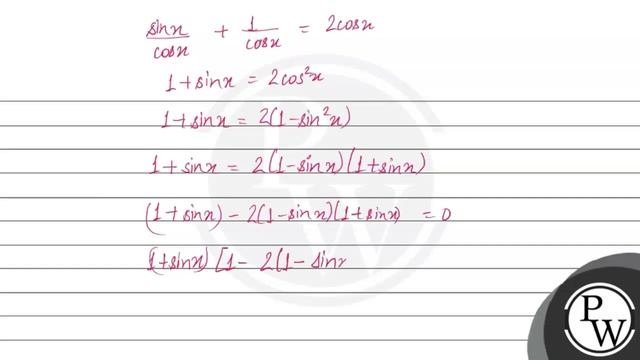 sinx/cosx + 1/cosx = 2cosx
1 + sinx = 2cos²x
1 + sinx = 2(1 - sin²x)
1 + sinx = 2(1 - sinx)(1 + sinx)
(1 + sinx) - 2(1 - sinx)(1 + sinx) = 0
(1 + sinx) [1 - 2(1 - sinx
PW
PW